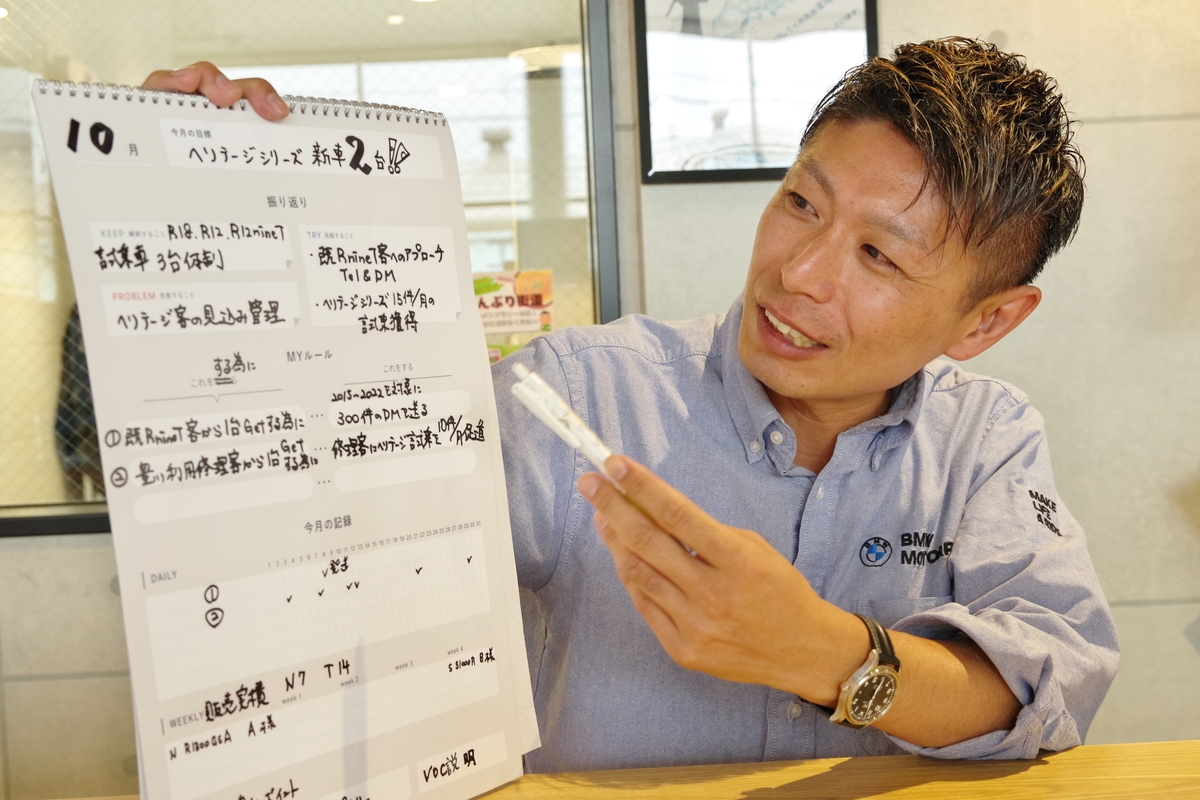 10月
今月の目標
ヘリテージシリーズ 新車2台!!
振り返り
KEEP 継続すること R18.R12.R12nineT
試乗車 3台体制
PROBLEM 改善すること
ヘリテージ客の見込み管理
TRY 挑戦すること
・既RnineT客へのアプローチ
Tel&DM
・ヘリテージシリーズ 15件/月の
試乗獲得
MYルール
する為に
これを
これをする
① 既RnineT客から1台Getする為に
2015~2022を対象に
300件のDMを送る
② 量り利用修理客から1台Get
する為に
修理客にヘリテージ試乗を10件/月促進
今月の記録
1 2 3 4 5 6 7 8 9 10 11 12 13 14 15 16 17 18 19 20 21 22 23 24 25 26 27 28 29 30 31
DAILY
発送
①
②
WEEKLY 販売実績 N7 T14
week 1 week 2 week 3 week 4
N R1300GSA A様
S S1000R B様
VOC説明
んぶり街道
BMW
MOTOR
MAKE
LIFE
A RIDE